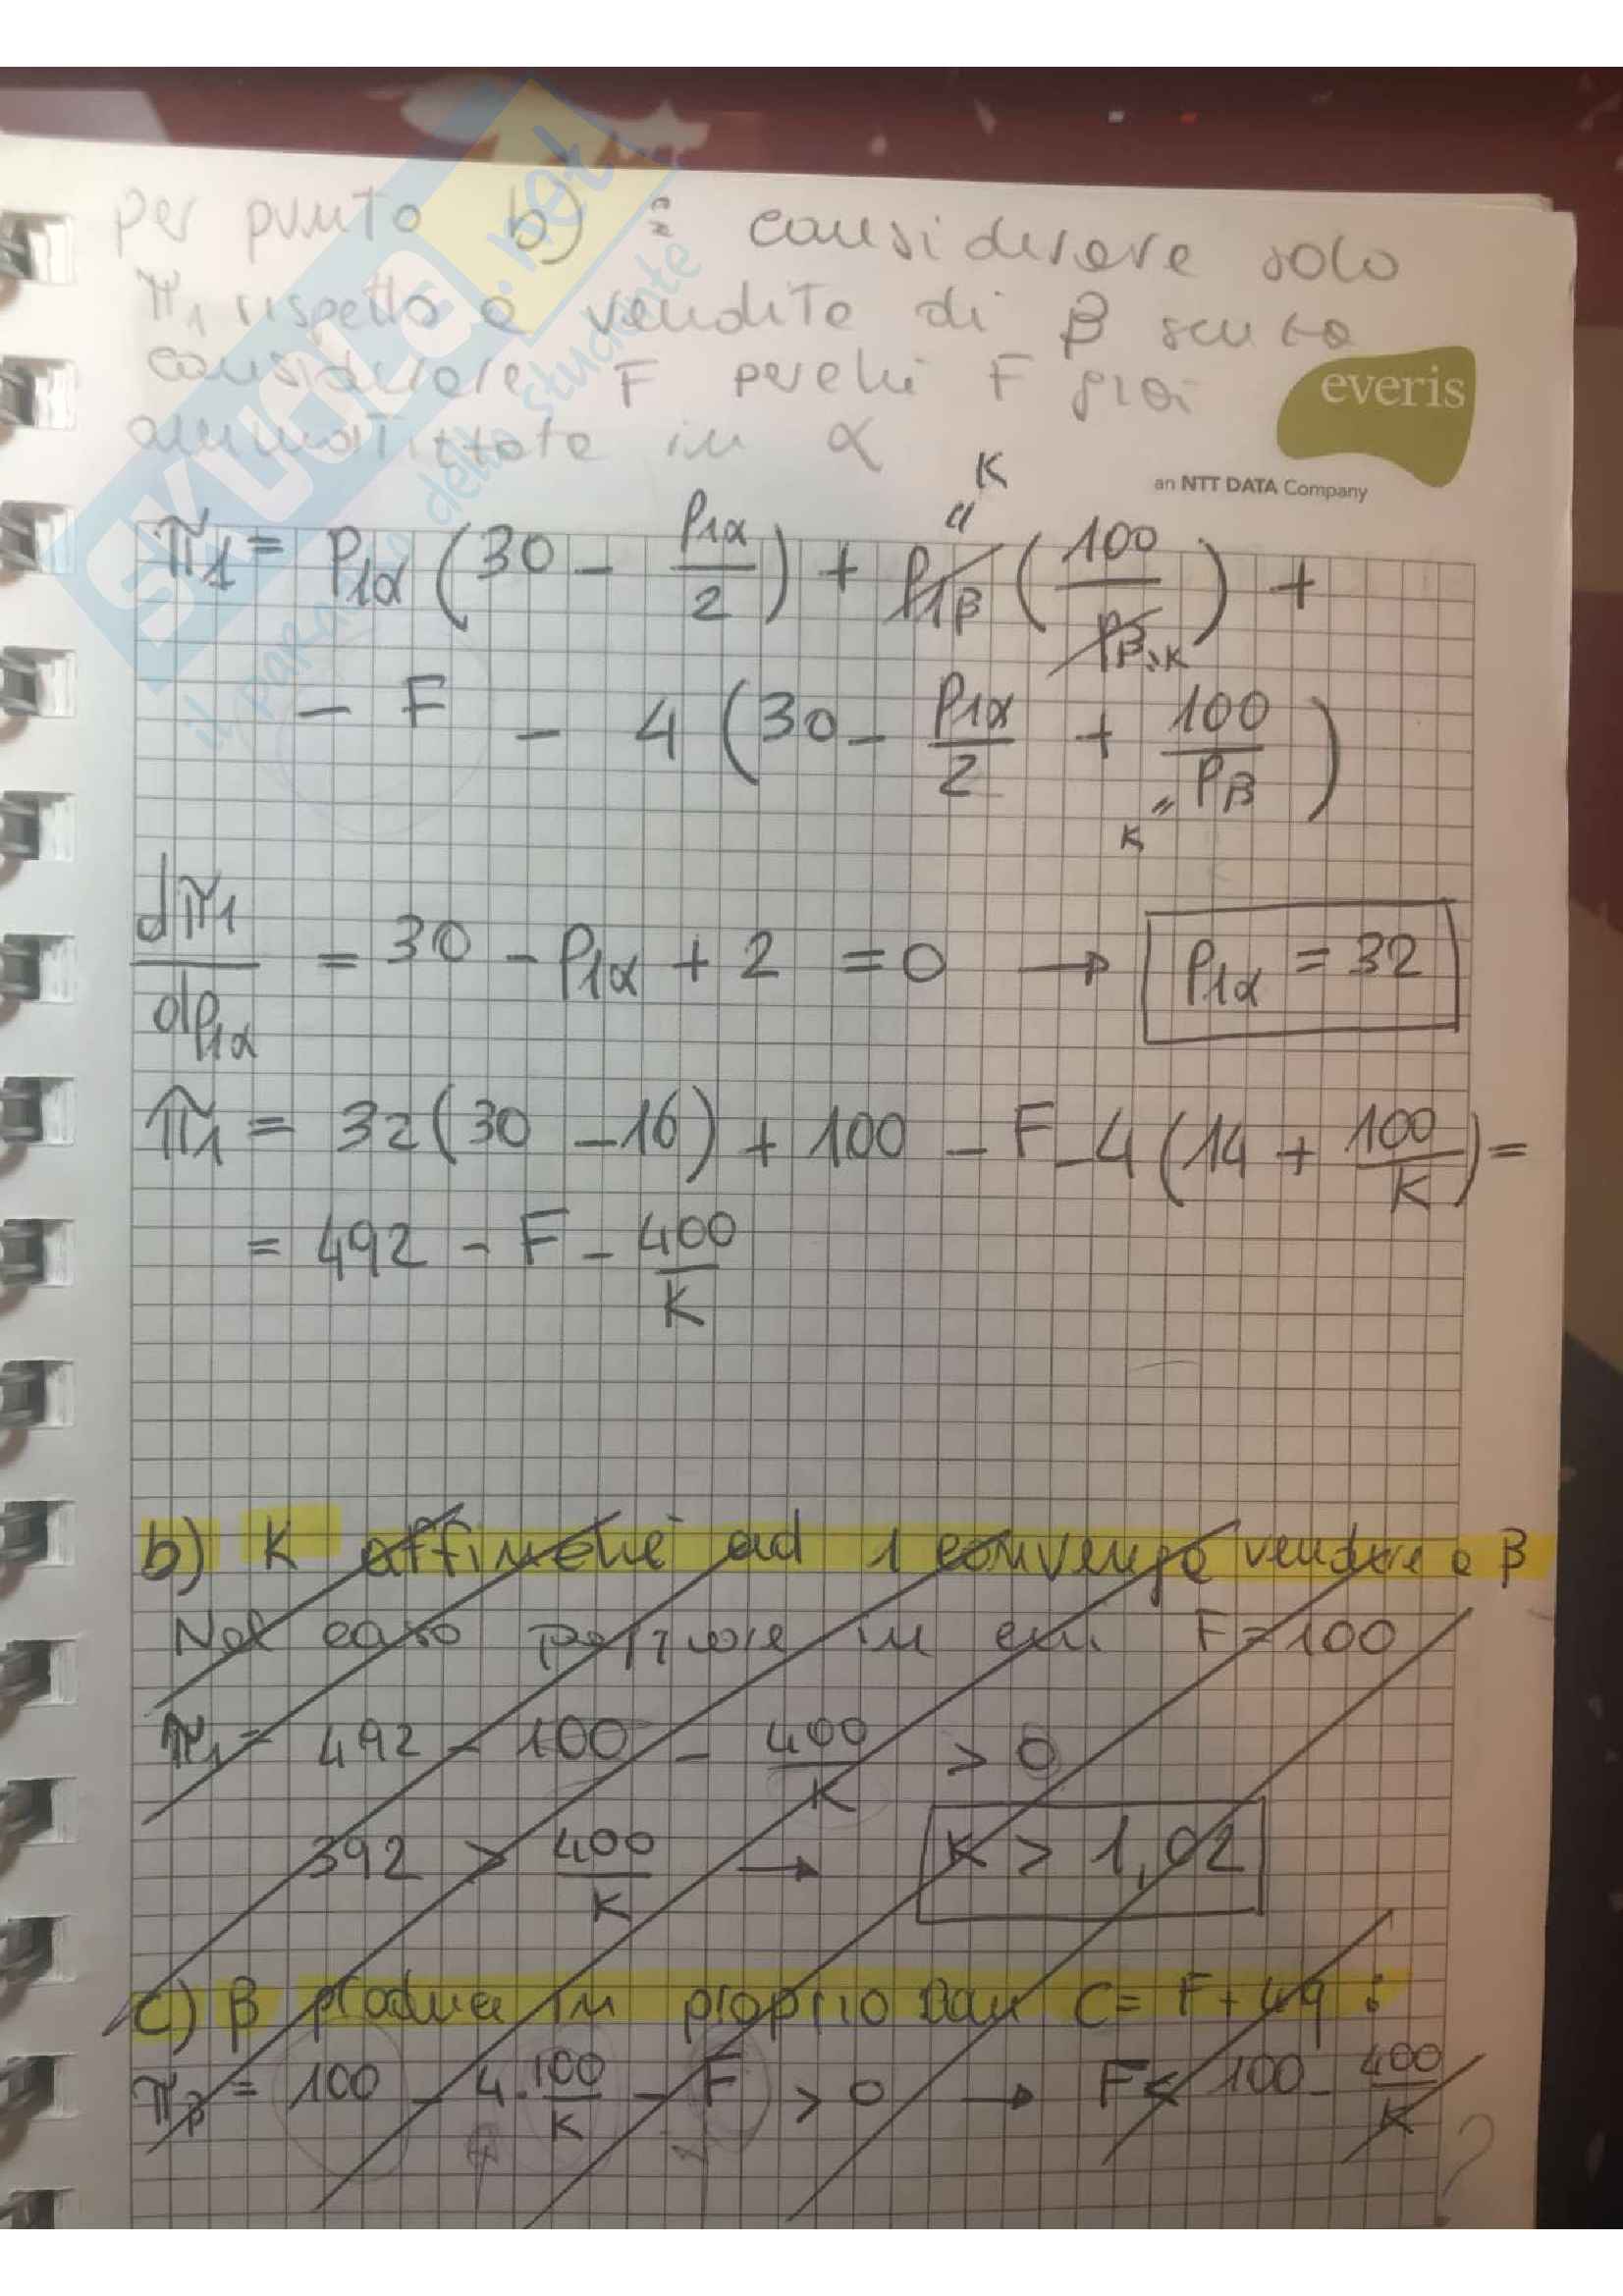 per punto b) : considerare solo
π1 rispetto a vendite di β senza
considerare F perché F già
ammortizzato in α
everis
an NTT DATA Company
SKUOLA.net
il paradiso dello studente
K
"
π1 = P1α (30 - P1α/2) + P1β (100/Pβ, K) +
- F - 4 (30 - P1α/2 + 100/Pβ)
K "
dπ1/dP1α = 30 - P1α + 2 = 0 → P1α = 32
π1 = 32(30 - 16) + 100 - F - 4(14 + 100/K) =
= 492 - F - 400/K
b) K affinché ad 1 convenga vendere a β
Nel caso peggiore in cui F = 100
π1 = 492 - 100 - 400/K > 0
392 > 400/K → K > 1,02
c) β produce in proprio con C = F + 4q :
πβ = 100 - 4·100/K - F > 0 → F < 100 - 400/K
?